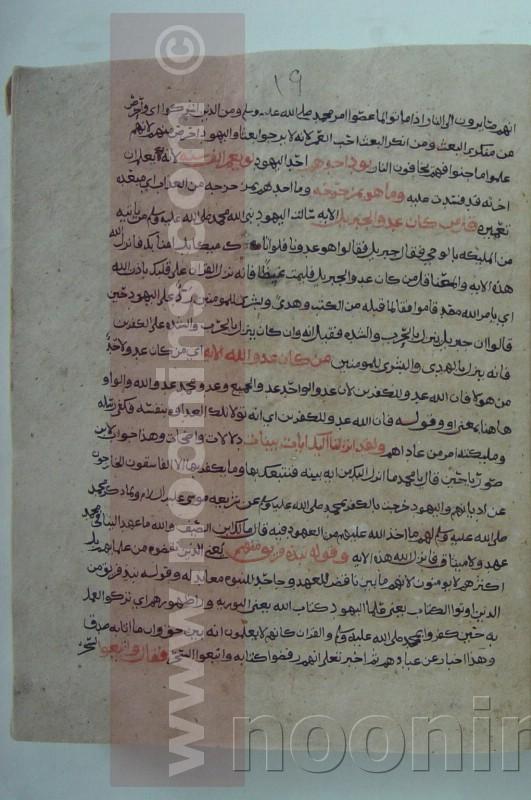 ١٩
انهم صايرون الى النار اذا ماتوا لما عصوا امر محمد صلى الله عليه وسلم ومن الذين اشركوا اى واحرص
من منكرى البعث ومن انكر البعث احب العمر لانه لا يرجوا بعثا واليهود احرص منهم لانهم
علموا ما جنوا فهم يخافون النار يود احدهم احد اليهود لو يعمر الف سنة لانه يعلم ان
اخرته قد فسدت عليه وما هو بمزحزحه وما احدهم بمزحزحه من العذاب اى مبعده
تعميره قل من كان عدوا لجبريل الاية سالت اليهود نبى الله محمد صلى الله عليه وسلم من ياتيه
من الملئكة بالوحى فقال جبريل فقالوا هو عدونا فلو اتاك ميكايل امنا بك فانزل الله
هذه الاية والمعنى قل من كان عدوا لجبريل فليمت غيظا فانه نزل القران على قلبك باذن الله
اى بامر الله مصدقا موافقا لما قبله من الكتب وهدى وبشرى للمومنين رد على اليهود حين
قالوا ان جبريل ينزل بالحرب والشدة فقيل انه وان كان ينزل بالحرب والشدة على الكفرين
فانه ينزل بالهدى والبشرى للمومنين من كان عدوا لله الاية اى من كان عدوا لاحد
من هولا فان الله عدو للكفرين لان عدو الواحد عدو الجميع وعدو محمد عدو الله والواو
هاهنا بمعنى او وقوله فان الله عدو للكفرين اى انه تولى تلك العداوة بنفسه فكفى رسله
وملئكته امر من عاداهم ولقد انزلنا اليك ايات بينات دلالات واضحات وهذا جواب لابن
صوريا حين قال يا محمد ما انزل اليك من اية بينة فنتبعك بها وما يكفر بها الا الفاسقون الخارجون
عن اديانهم واليهود خرجت بالكفر بمحمد صلى الله عليه وسلم عن شريعة موسى عليه السلام ولما ذكر محمد
صلى الله عليه وسلم لهم ما اخذ الله عليهم من العهود فيه قال مالك بن الضيف والله ما عهد الينا فى محمد
عهد ولا ميثاق فانزل الله هذه الاية وقوله نبذه فريق منهم يعنى الذين نقضوه من علمائهم بل
اكثرهم لا يومنون لانهم ما بين ناقض للعهد وجاحد للنبوة معاند له وقوله نبذ فريق من
الذين اوتوا الكتاب يعنى علما اليهود كتاب الله يعنى التورية ورا ظهورهم اى تركوا العمل
به حين كفروا بمحمد صلى الله عليه وسلم والقران كانهم لا يعلمون انه حق وان ما اتى به صدق
وهذا اخبار عن عنادهم ثم اخبر تعالى انهم رفضوا كتابه واتبعوا السحر فقال واتبعوا
www.noonins
©
noonin